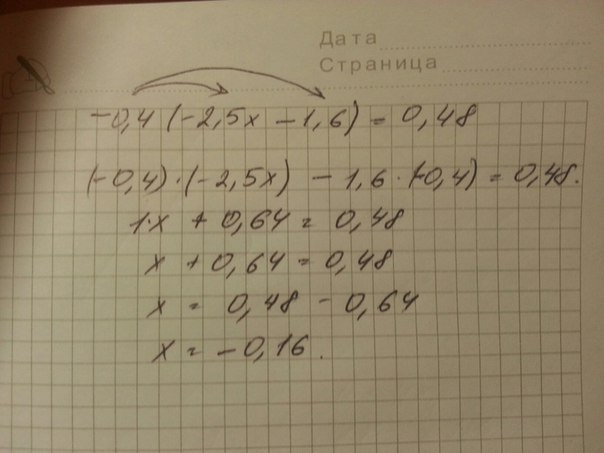 Дата
Страница
-0,4 (-2,5x - 1,6) = 0,48
(-0,4)·(-2,5x) - 1,6·(-0,4) = 0,48.
1·x + 0,64 = 0,48
x + 0,64 = 0,48
x = 0,48 - 0,64
x = -0,16.